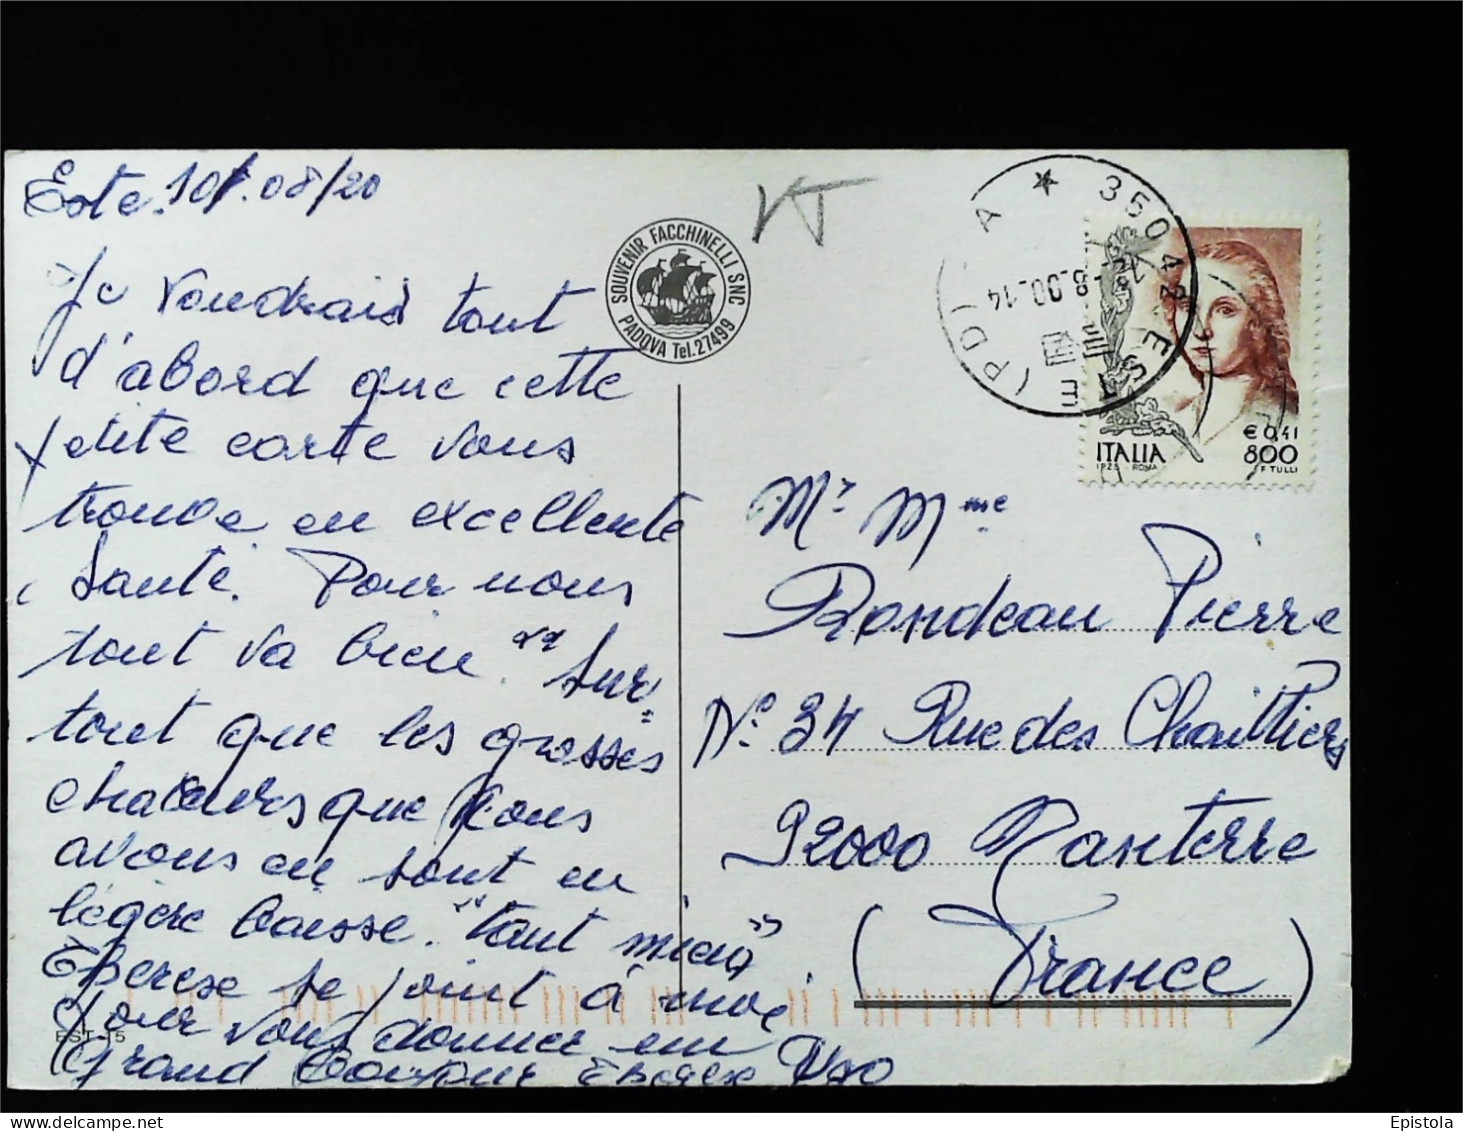 Este 10/08/20
Je voudrais tout
d'abord que cette
petite carte vous
trouve en excellente
Santé. Pour nous
tout va bien " " Sur=
tout que les grosses
chaleurs que nous
avons eu sont en
légère baisse. "Tant mieux"
Therese se joint à moi
Pour vous donner un
Grand Therese Ugo
EST-15
SOUVENIR FACCHINELLI SNC
PADOVA Tel.27499
VT
35042 ESTE (PD)
8.00-14
ITALIA
I.P.Z.S. ROMA
€ 0,41
800
F TULLI
Mr Mme
Rondeau Pierre
N° 34 Rue des Chaittiers
92000 Nanterre
(France)
Epistola